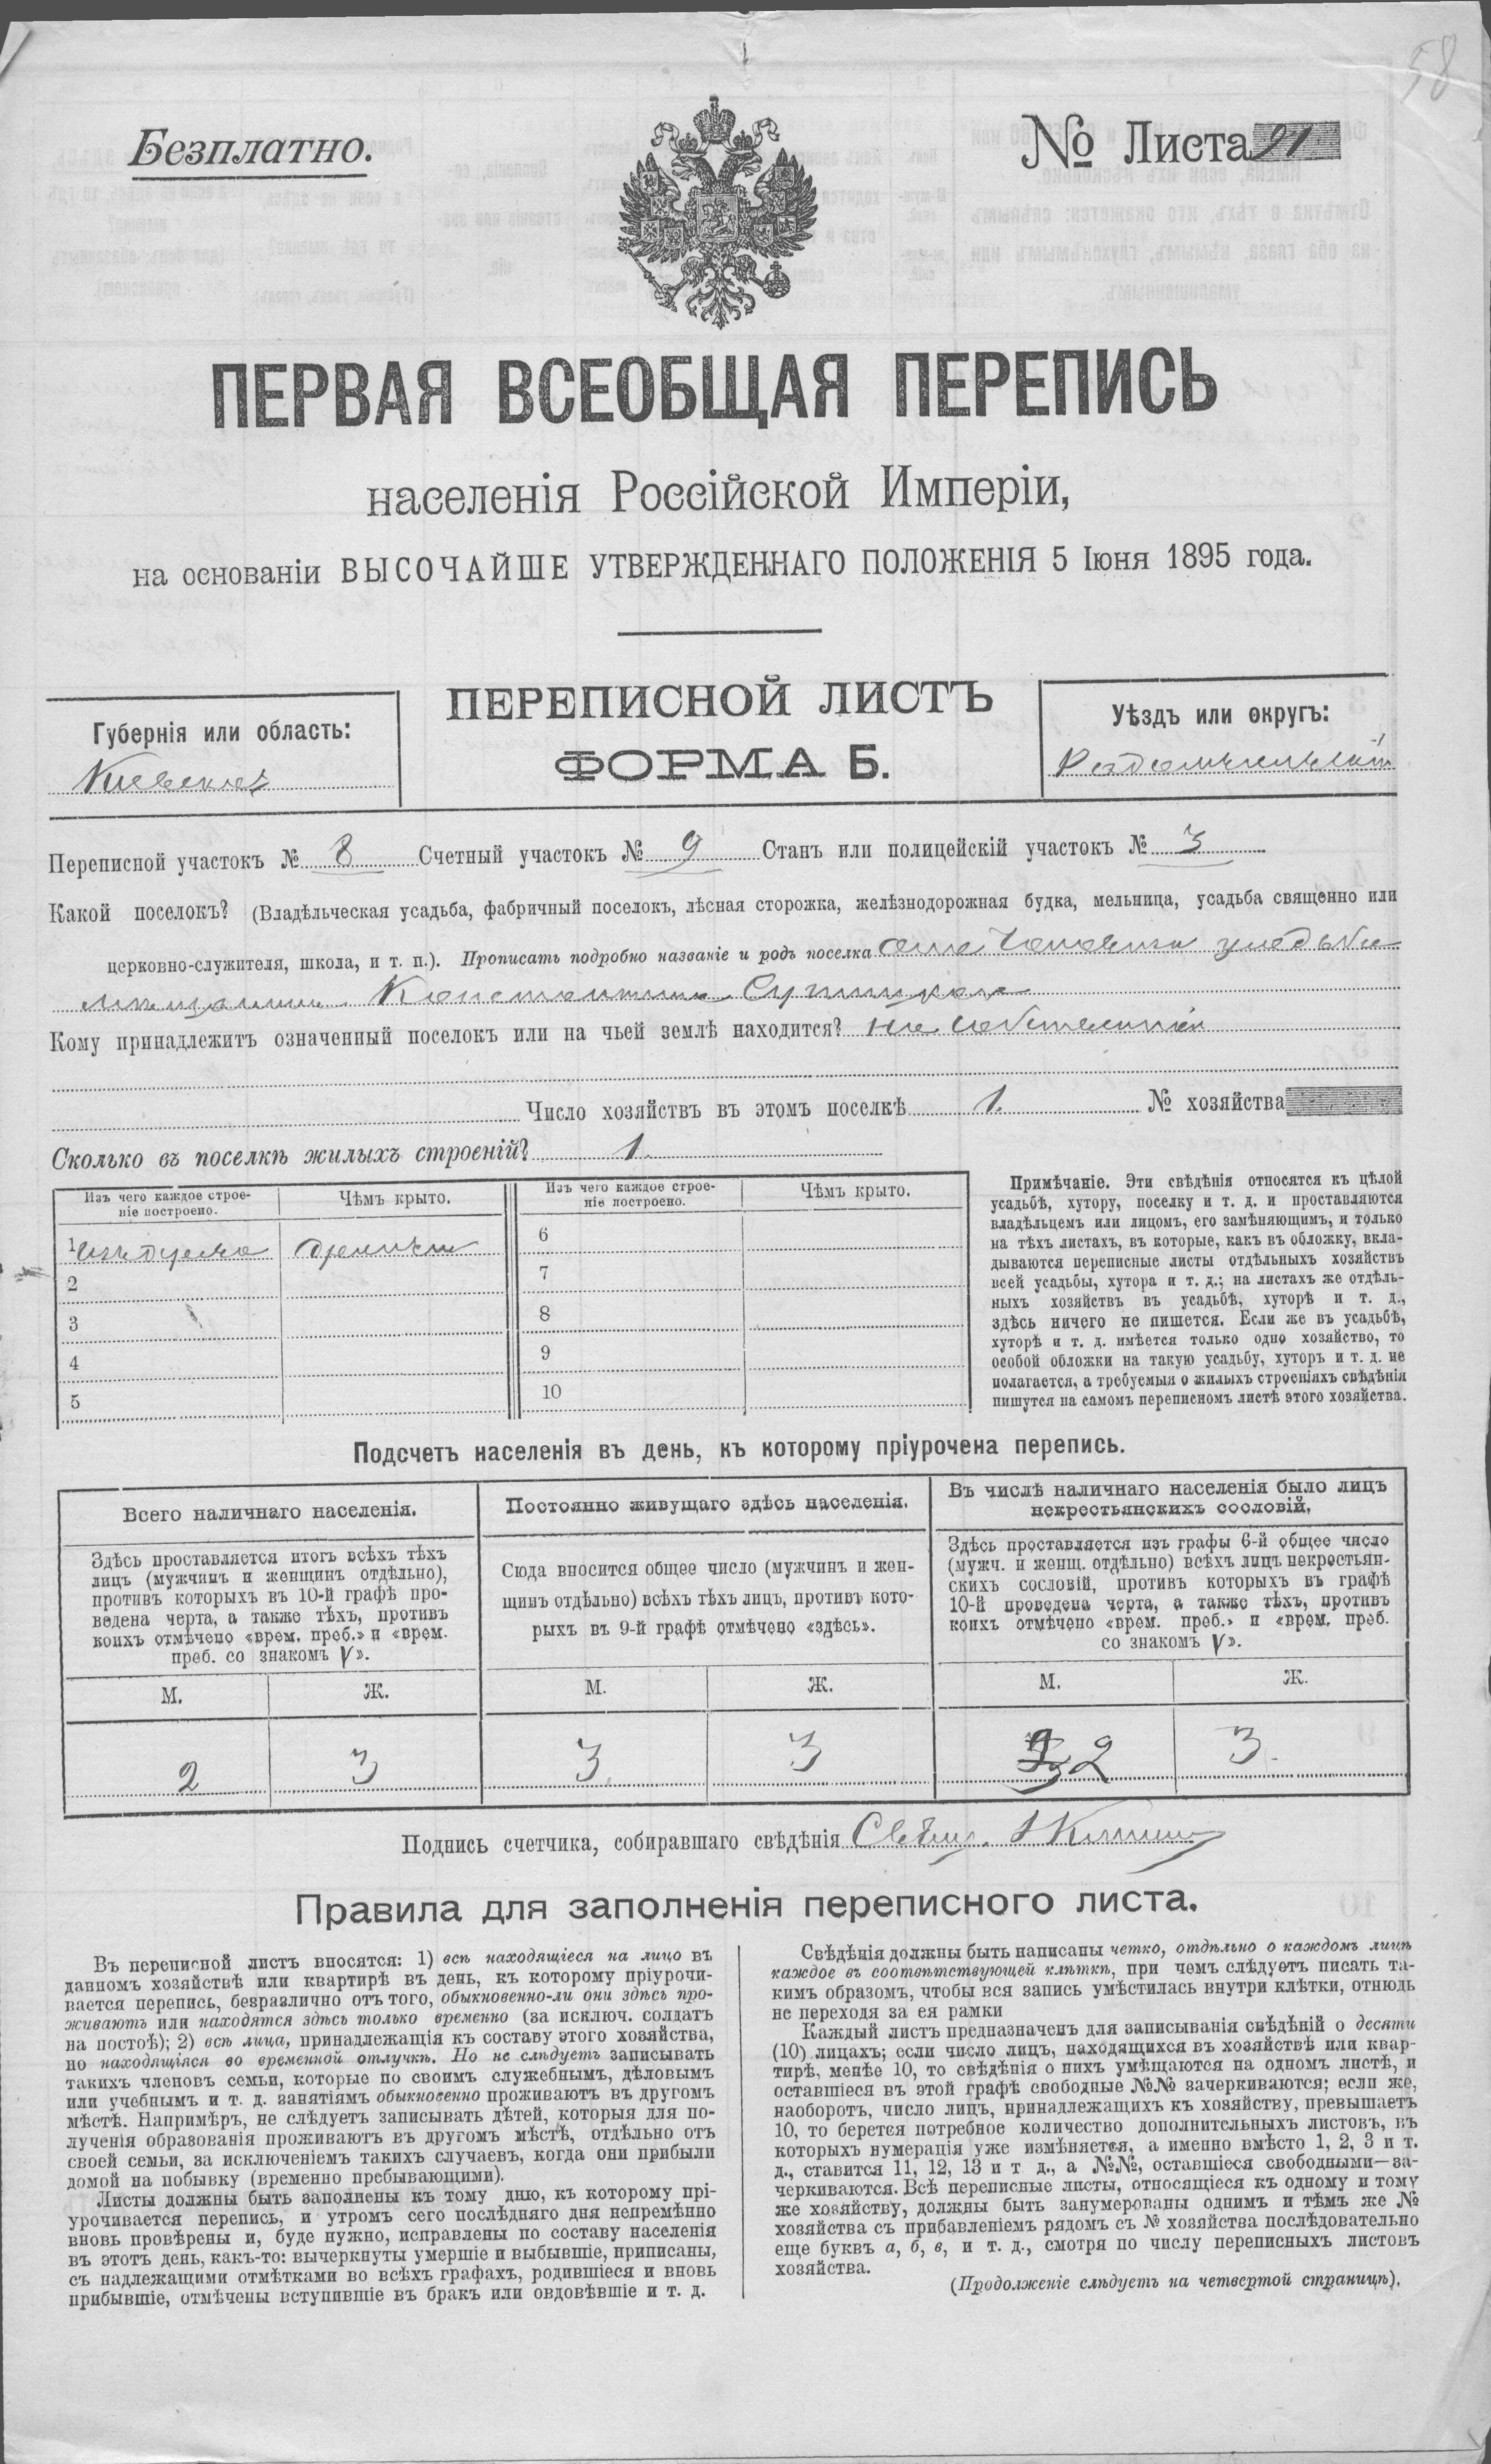 58
Безплатно.
№ Листа 91
ПЕРВАЯ ВСЕОБЩАЯ ПЕРЕПИСЬ
населенія Россійской Имперіи,
на основаніи ВЫСОЧАЙШЕ УТВЕРЖДЕННАГО ПОЛОЖЕНІЯ 5 Іюня 1895 года.
ПЕРЕПИСНОЙ ЛИСТЪ
ФОРМА Б.
Губернія или область:
Кіевская
Уѣздъ или округъ:
Радомысльскій
Переписной участокъ № 8 Счетный участокъ № 9 Станъ или полицейскій участокъ № 3
Какой поселокъ? (Владѣльческая усадьба, фабричный поселокъ, лѣсная сторожка, желѣзнодорожная будка, мельница, усадьба священно или
церковно-служителя, школа, и т. п.). Прописать подробно названіе и родъ поселка усадьба
мещанина Константина
Кому принадлежитъ означенный поселокъ или на чьей землѣ находится? на собственной
Число хозяйствъ въ этомъ поселкѣ 1. № хозяйства
Сколько въ поселкѣ жилыхъ строеній? 1.
Изъ чего каждое строе-
ніе построено.
Чѣмъ крыто.
Изъ чего каждое строе-
ніе построено.
Чѣмъ крыто.
1 изъ дерева
2
3
4
5
6
7
8
9
10
Примѣчаніе. Эти свѣдѣнія относятся къ цѣлой
усадьбѣ, хутору, поселку и т. д. и проставляются
владѣльцемъ или лицомъ, его замѣняющимъ, и только
на тѣхъ листахъ, въ которые, какъ въ обложку, вкла-
дываются переписные листы отдѣльныхъ хозяйствъ
всей усадьбы, хутора и т. д.; на листахъ же отдѣль-
ныхъ хозяйствъ въ усадьбѣ, хуторѣ и т. д.,
здѣсь ничего не пишется. Если же въ усадьбѣ,
хуторѣ и т. д. имѣется только одно хозяйство, то
особой обложки на такую усадьбу, хуторъ и т. д. не
полагается, а требуемыя о жилыхъ строеніяхъ свѣдѣнія
пишутся на самомъ переписномъ листѣ этого хозяйства.
Подсчетъ населенія въ день, къ которому пріурочена перепись.
Всего наличнаго населенія.
Здѣсь проставляется итогъ всѣхъ тѣхъ
лицъ (мужчинъ и женщинъ отдѣльно),
противъ которыхъ въ 10-й графѣ про-
ведена черта, а также тѣхъ, противъ
коихъ отмѣчено «врем. преб.» и «врем.
преб. со знакомъ V».
Постоянно живущаго здѣсь населенія.
Сюда вносится общее число (мужчинъ и жен-
щинъ отдѣльно) всѣхъ тѣхъ лицъ, противъ кото-
рыхъ въ 9-й графѣ отмѣчено «здѣсь».
Въ числѣ наличнаго населенія было лицъ
некрестьянскихъ сословій.
Здѣсь проставляется изъ графы 6-й общее число
(мужч. и женщ. отдѣльно) всѣхъ лицъ некрестьян-
скихъ сословій, противъ которыхъ въ графѣ
10-й проведена черта, а также тѣхъ, противъ
коихъ отмѣчено «врем. преб.» и «врем. преб.
со знакомъ V».
М. Ж. М. Ж. М. Ж.
2 3 3 3 2 3.
Подпись счетчика, собиравшаго свѣдѣнія
Правила для заполненія переписного листа.
Въ переписной листъ вносятся: 1) всѣ находящіеся на лицо въ
данномъ хозяйствѣ или квартирѣ въ день, къ которому пріурочи-
вается перепись, безразлично отъ того, обыкновенно-ли они здѣсь про-
живаютъ или находятся здѣсь только временно (за исключ. солдатъ
на постоѣ); 2) всѣ лица, принадлежащія къ составу этого хозяйства,
но находящіяся во временной отлучкѣ. Но не слѣдуетъ записывать
такихъ членовъ семьи, которые по своимъ служебнымъ, дѣловымъ
или учебнымъ и т. д. занятіямъ обыкносенно проживаютъ въ другомъ
мѣстѣ. Напримѣръ, не слѣдуетъ записывать дѣтей, которыя для по-
лученія образованія проживаютъ въ другомъ мѣстѣ, отдѣльно отъ
своей семьи, за исключеніемъ такихъ случаевъ, когда они прибыли
домой на побывку (временно пребывающими).
Листы должны быть заполнены къ тому дню, къ которому прі-
урочивается перепись, и утромъ сего послѣдняго дня непремѣнно
вновь провѣрены и, буде нужно, исправлены по составу населенія
въ этотъ день, какъ-то: вычеркнуты умершіе и выбывшіе, приписаны,
съ надлежащими отмѣтками во всѣхъ графахъ, родившіеся и вновь
прибывшіе, отмѣчены вступившіе въ бракъ или овдовѣвшіе и т. д.
Свѣдѣнія должны быть написаны четко, отдѣльно о каждомъ лицѣ
каждое въ соотвѣтствующей клѣткѣ, при чемъ слѣдуетъ писать та-
кимъ образомъ, чтобы вся запись умѣстилась внутри клѣтки, отнюдь
не переходя за ея рамки
Каждый листъ предназначенъ для записыванія свѣдѣній о десяти
(10) лицахъ; если число лицъ, находящихся въ хозяйствѣ или квар-
тирѣ, менѣе 10, то свѣдѣнія о нихъ умѣщаются на одномъ листѣ, и
оставшіеся въ этой графѣ свободные №№ зачеркиваются; если же,
наоборотъ, число лицъ, принадлежащихъ къ хозяйству, превышаетъ
10, то берется потребное количество дополнительныхъ листовъ, въ
которыхъ нумерація уже измѣняется, а именно вмѣсто 1, 2, 3 и т.
д., ставится 11, 12, 13 и т д., а №№, оставшіеся свободными—за-
черкиваются. Всѣ переписные листы, относящіеся къ одному и тому
же хозяйству, должны быть занумерованы однимъ и тѣмъ же №
хозяйства съ прибавленіемъ рядомъ съ № хозяйства послѣдовательно
еще буквъ а, б, в, и т. д., смотря по числу переписныхъ листовъ
хозяйства.
(Продолженіе слѣдуетъ на четвертой страницѣ).